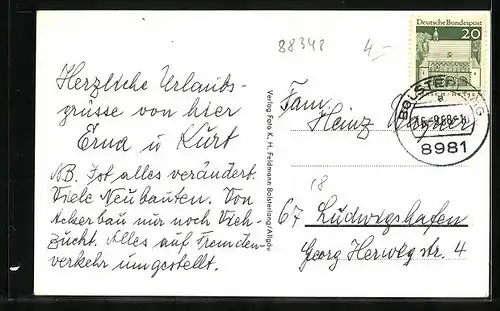 88348
4.-
Deutsche Bundespost
20
Herzliche Urlaubs-
grüsse von hier
Erna u. Kurt
NB. Ist alles verändert.
Viele Neubauten. Von
Ackerbau nur noch Vieh-
zucht. Alles auf Fremden-
verkehr umgestellt.
Verlag Foto K. H. Feldmann Bolsterlang/Allgäu
BOLSTERLANG
a
8981
Fam.
Heinz
18
67 Ludwigshafen
Georg Herwegstr. 4